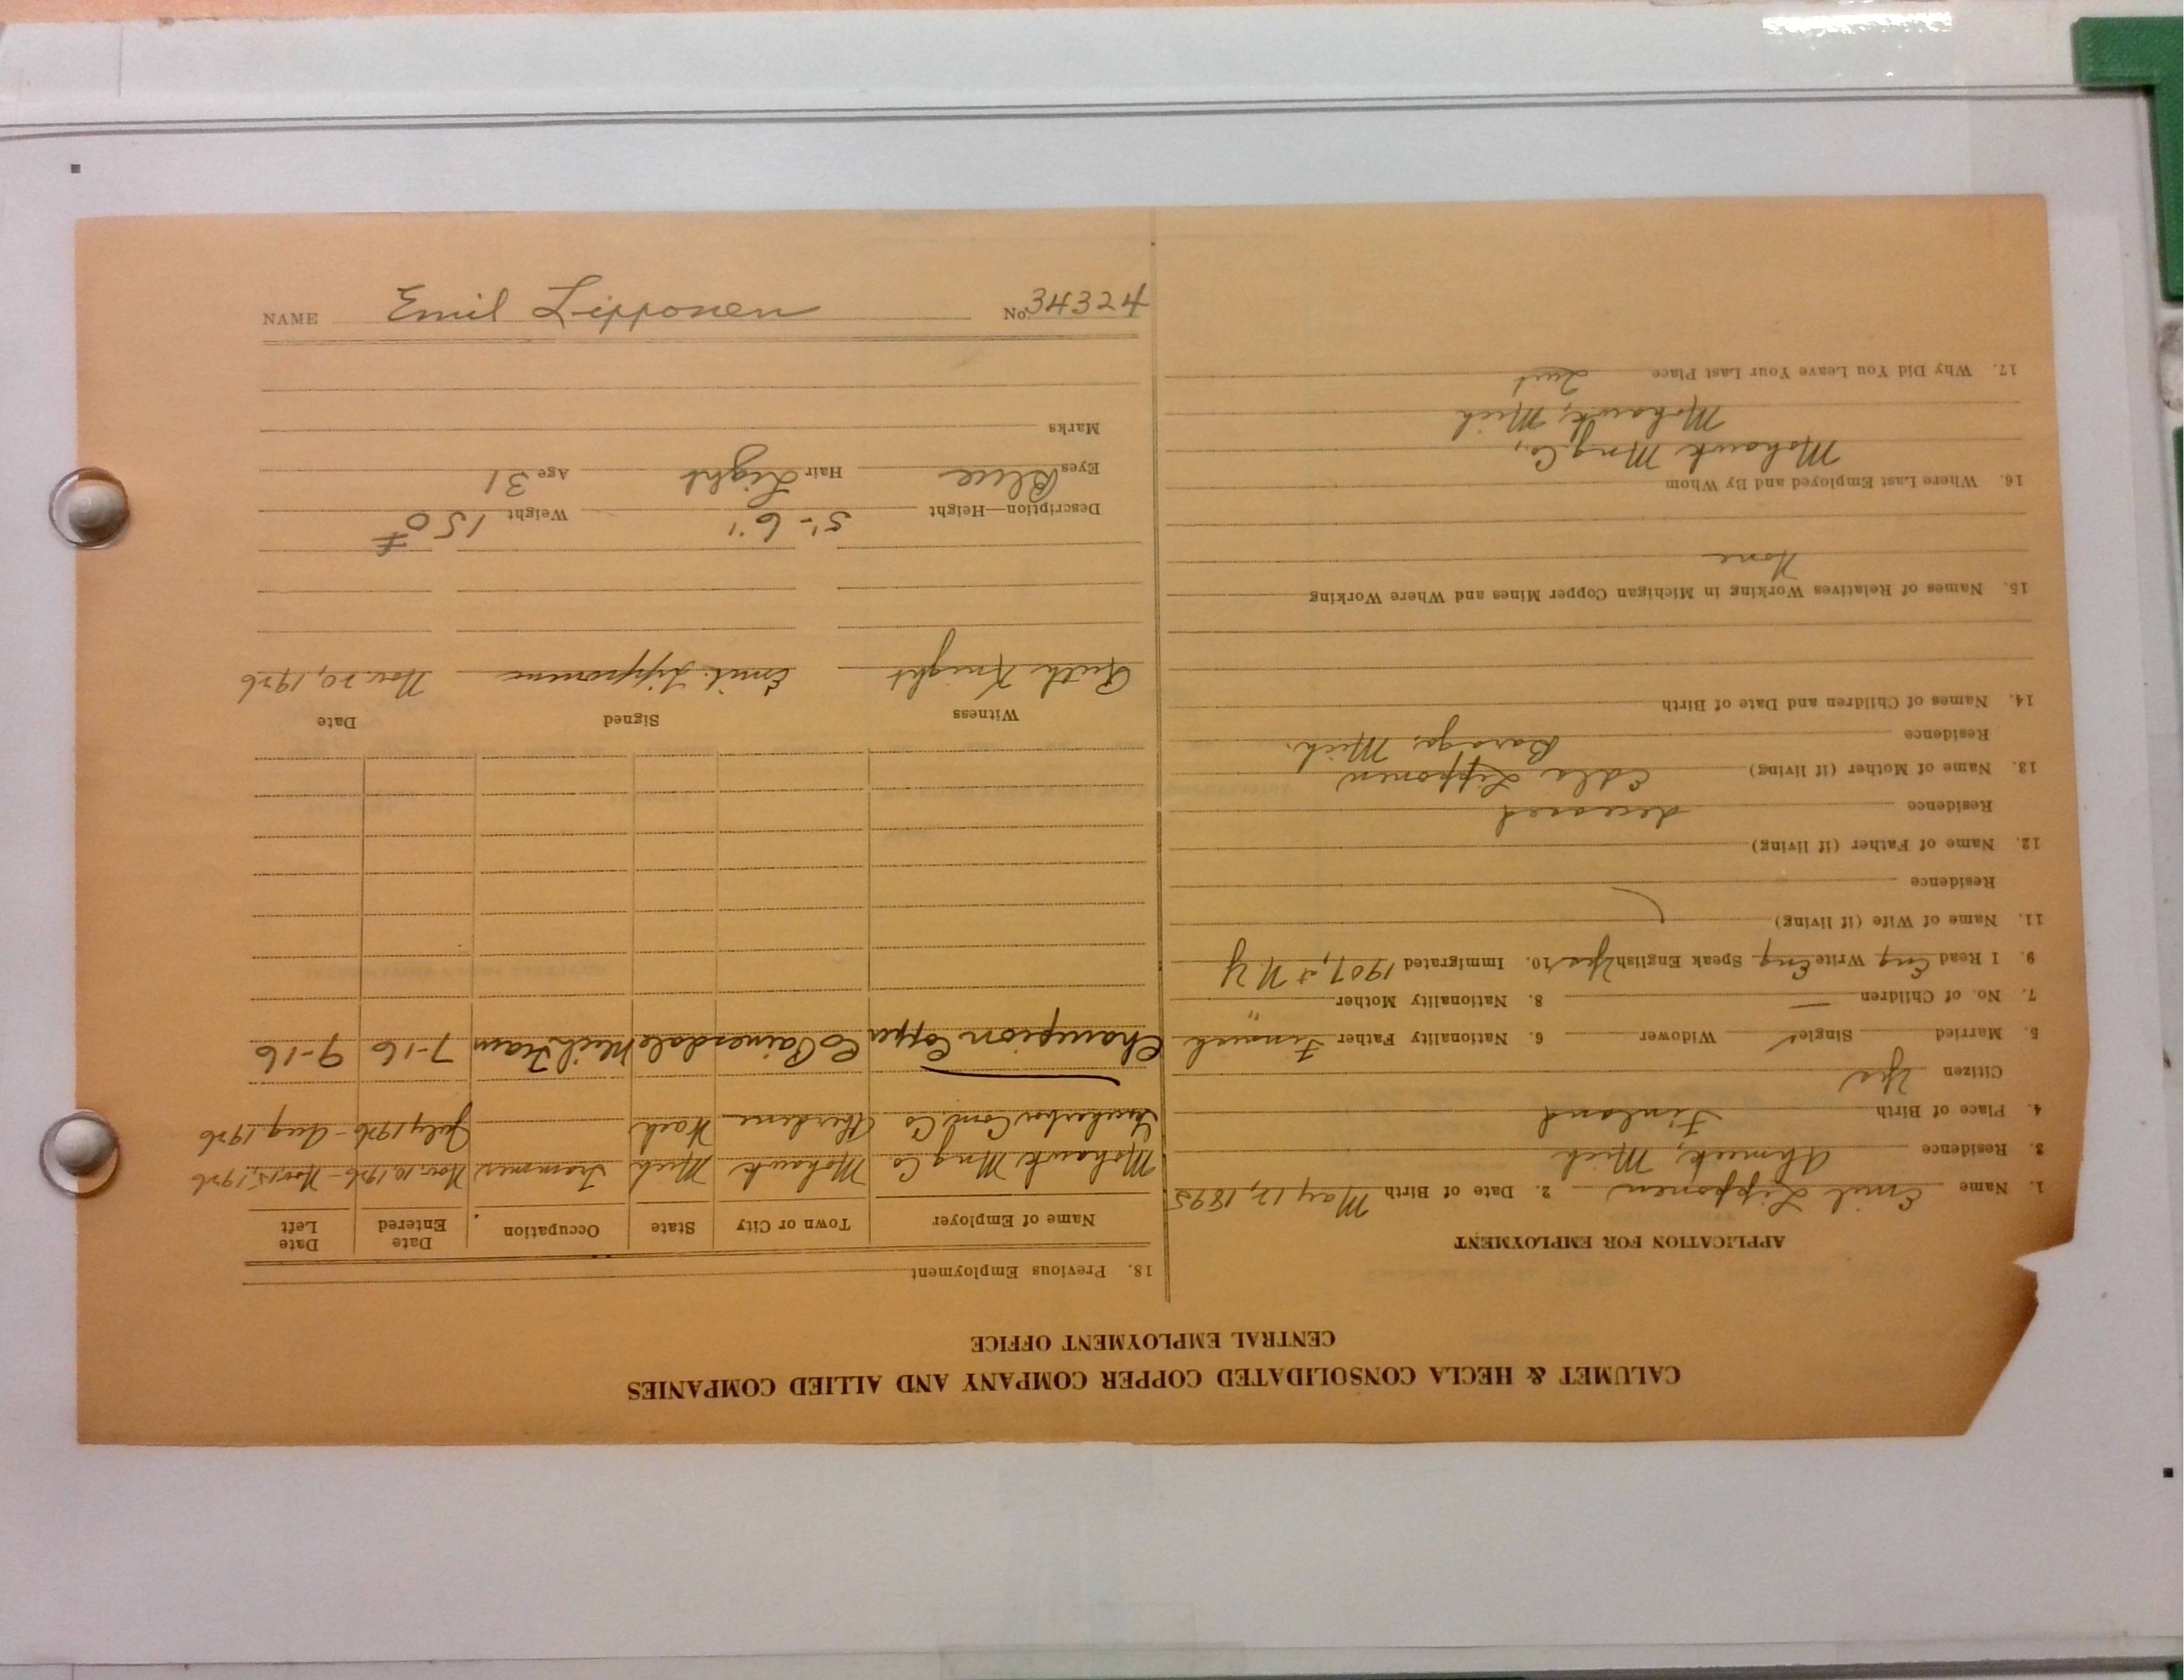 NAME Emil Lipponen No. 34324
CALUMET & HECLA CONSOLIDATED COPPER COMPANY AND ALLIED COMPANIES
CENTRAL EMPLOYMENT OFFICE
APPLICATION FOR EMPLOYMENT
1. Name Emil Lipponen 2. Date of Birth May 12, 1895
3. Residence Ahmeek, Mich
4. Place of Birth Finland
Citizen Yes
5. Married Single ✓ Widower 6. Nationality Father Finnish
7. No. of Children — 8. Nationality Mother "
9. I Read Eng Write Eng Speak English Yes 10. Immigrated 1907, at N Y
11. Name of Wife (if living)
Residence
12. Name of Father (if living)
Residence deceased
13. Name of Mother (if living) Edla Lipponen
Residence Baraga, Mich.
14. Names of Children and Date of Birth
15. Names of Relatives Working in Michigan Copper Mines and Where Working
None
16. Where Last Employed and By Whom
Mohawk Mng. Co.,
Mohawk, Mich
17. Why Did You Leave Your Last Place Quit
18. Previous Employment
Name of Employer Town or City State Occupation Date Entered Date Left
Mohawk Mng Co Mohawk Mich Trammer Nov. 10, 1926 - Nov. 15, 1926
Cond. Co Aberdene Wash July 1926 - Aug 1926
Champion Copper Co Painesdale Mich Tram 7-16 9-16
Witness Signed Date
Ruth Knight Emil Lipponen Nov. 20, 1926
Description—Height 5'-6" Weight 150 #
Eyes Blue Hair Light Age 31
Marks